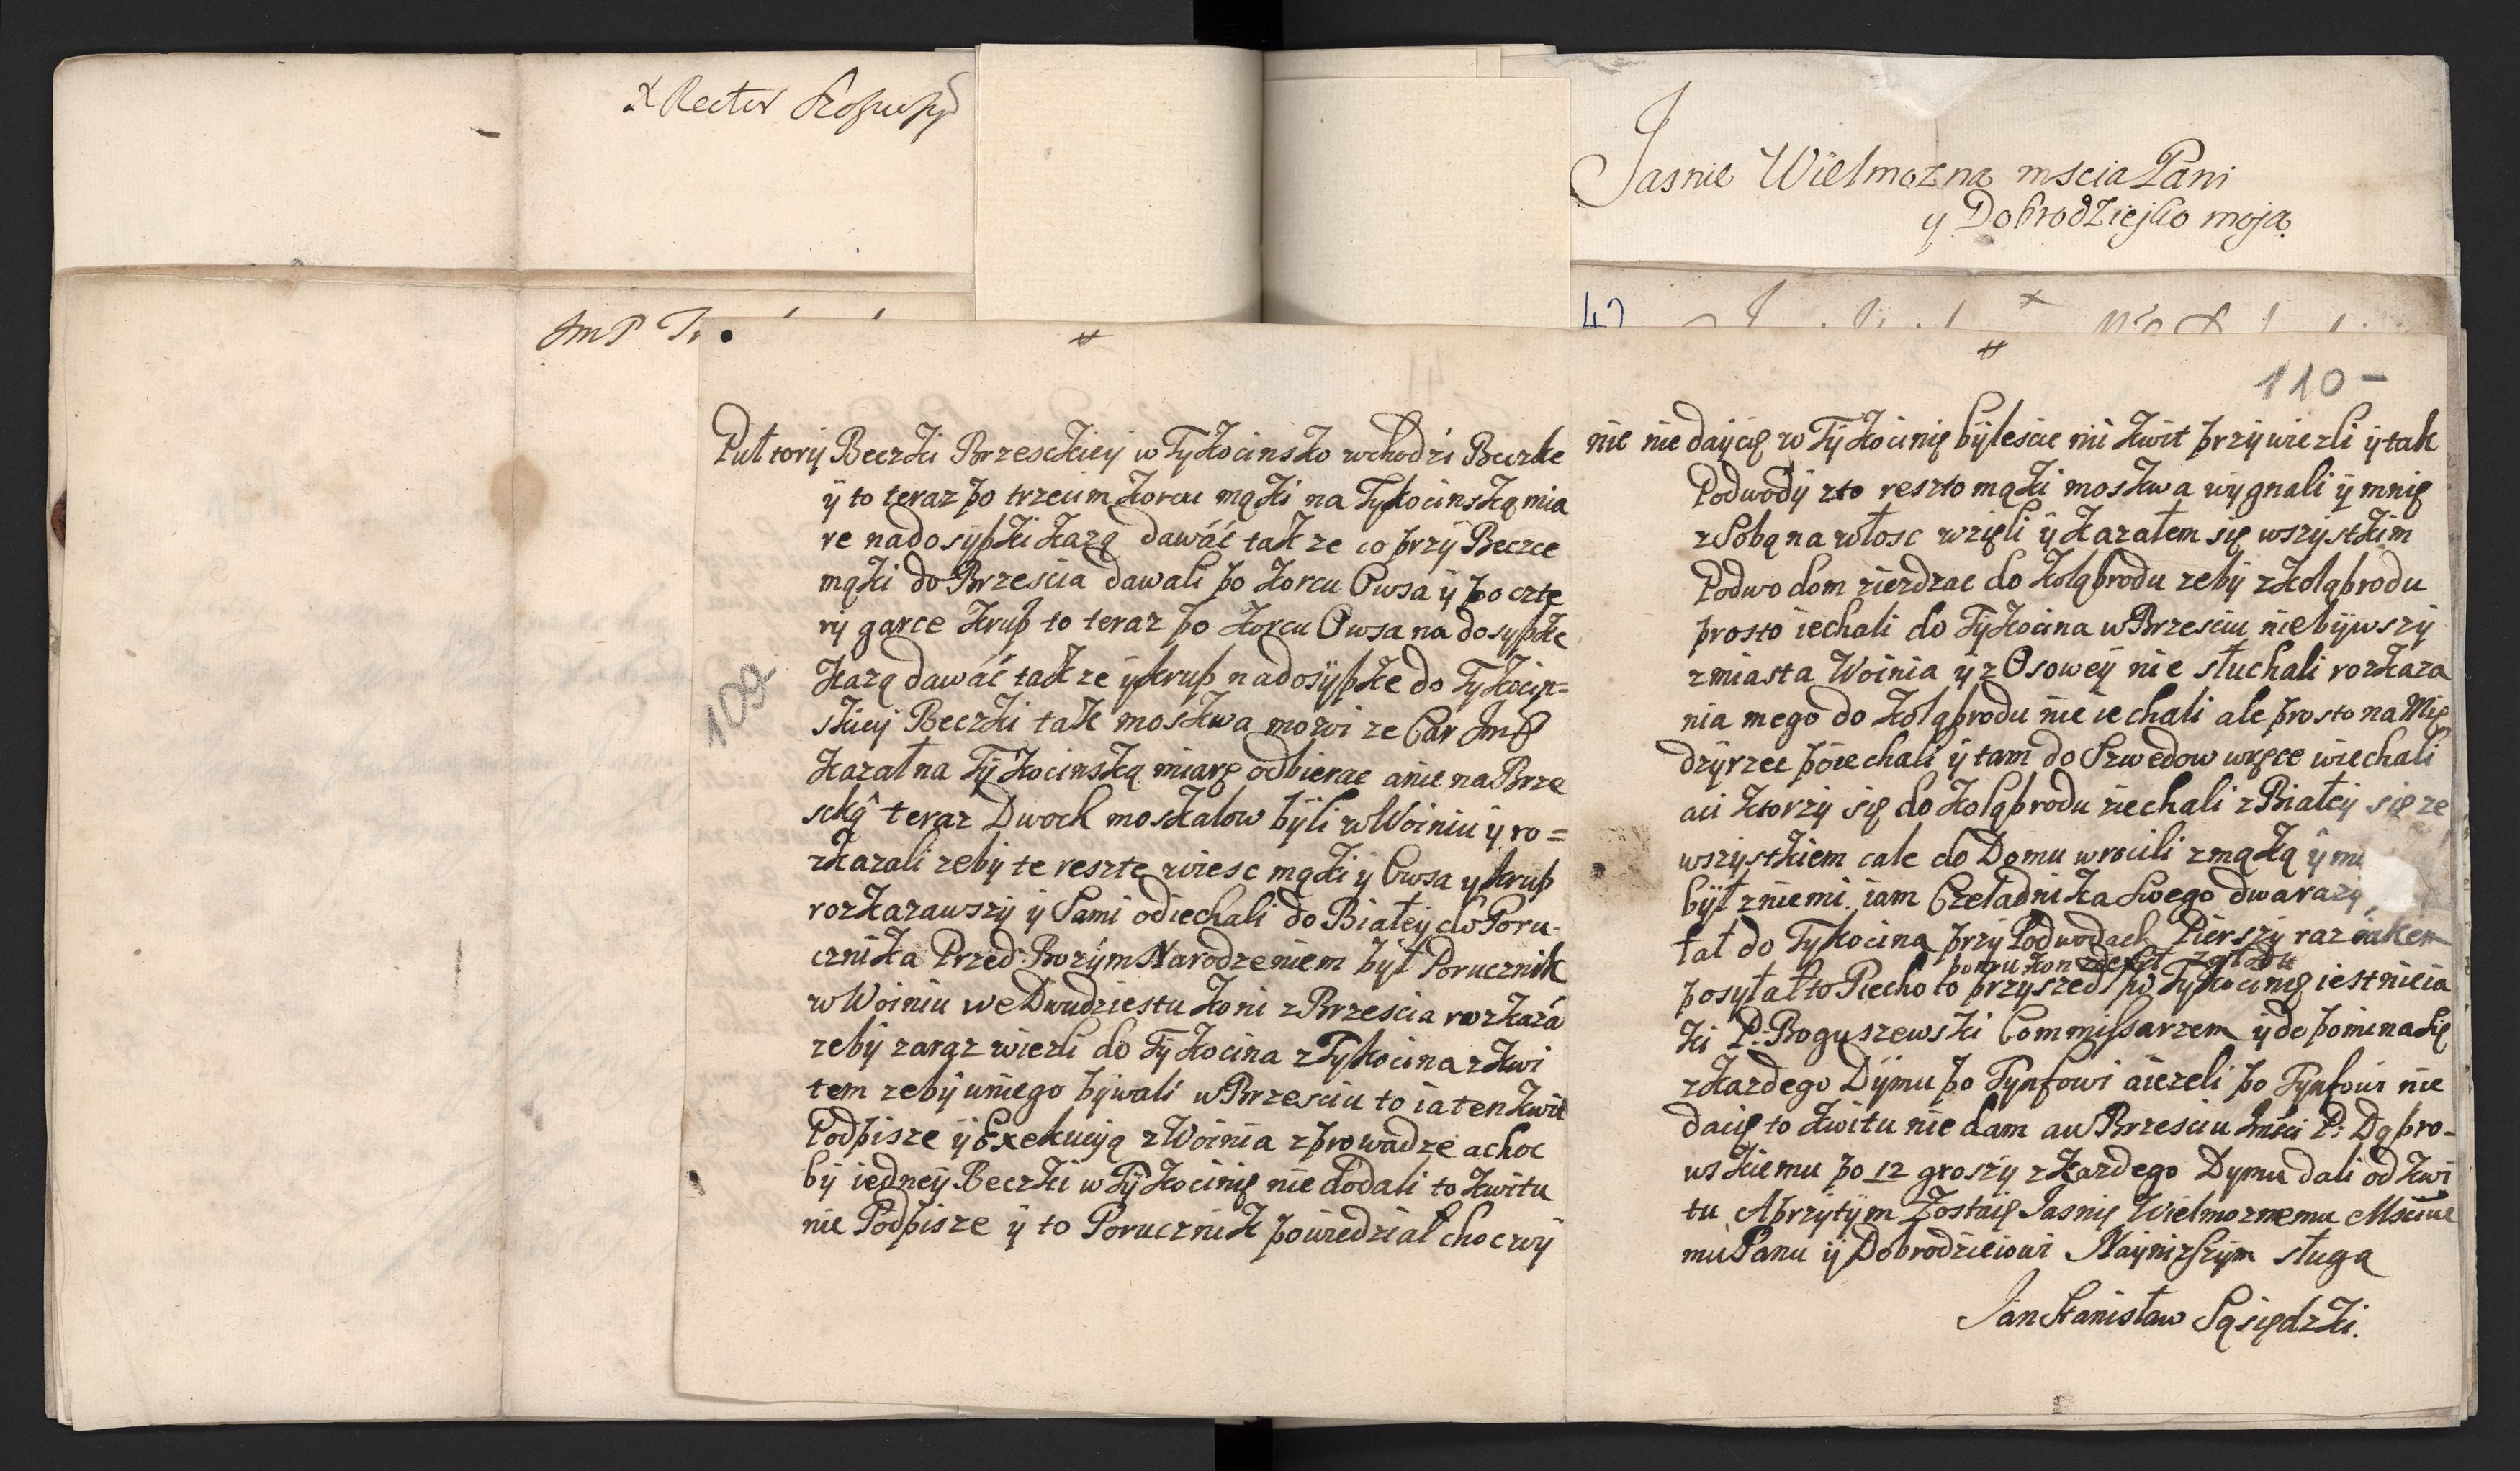 X Rector
Jasnie Wielmozna mscia Pani
y Dobrodziejko moja
Jm P
42
109
Pułtorÿ Beczki Brzesckieÿ w Tykocinsko wchodzi Beczke
ÿ to teraz po trzecim korcu mąki na Tykocinską mia
re nadosÿpki każą dawáć tak ze co przÿ Beczce
mąki do Brzescia dawali po korcu Owsa ÿ po czte
rÿ garce krup to teraz po korcu Owsa na dosypke
każą dawáć tak ze ÿ krup nadosÿpke do Tykocin=
skieÿ Beczki tak moskwa mowi ze Car Jmć
kazał na Tÿkocinską miarę odbierac anie na Brze
scką teraz Dwoch moskalow bÿli w Woiniu ÿ ro=
zkazali zebÿ te reszte wiesc mąki ÿ Owsa y krup
rozkazawszÿ ÿ Sami odiechali do Białeÿ do Poru-
cznika Przed: Bozÿm Narodzeniem bÿł Porucznik
w Woiniu we Dwudziestu koni z Brzescia rozkazá
zebÿ zaraz wiezli do Tÿkocina z Tykocina z kwi
tem zebÿ uniego bÿwali w Brzesciu to ia ten kwit
Podpisze ÿ Exekucÿą z Woinia zprowadze a choc
bÿ iedneÿ Beczki w Tÿkocinię nie dodali to kwitu
nie Podpisze ÿ to Porucznik powiedział choc wÿ
110 -
nic nie daÿcię w Tÿkocinię bÿlescie mi kwit przÿwiezli ÿ tak
Podwodÿ zto reszto mąki moskwa wÿgnali ÿ mnię
z Sobą na włosc wzięli ÿ kazałem się wszÿstkim
Podwodom ziezdzac do Koląbrodu zebÿ z Koląbrodu
prosto iechali do Tÿkocina w Brzesciu niebÿwszÿ
z miasta Woinia ÿ z Osoweÿ nie słuchali rozkaza
nia mego do Koląbrodu nie iechali ale prosto na Mię
dzÿrzec poiechali ÿ tam do Szwedow wręce wiechali
aci ktorzÿ się do Koląbrodu ziechali z Białeÿ się ze
wszÿstkiem cale do Domu wrocili z mąką ÿ
bÿł zniemi iam Czeladnika Swego dwarazÿ
łał do Tykocina przÿ Podwodach Pierszÿ raz iakem
pomu kon zdechł zgłodu
posÿłał to Piechoto przÿszed w Tykocinię iest nieia
ki P: Boguszewski Commissarzem ÿ do pomina Się
z kazdego Dÿmu po Tynfowi aiezeli po Tynfowi nie
dacię to kwitu nie dam a w Brzesciu Jmści P: Dąbro-
wskiemu po 12 groszÿ z kazdego Dymu dali od kwi
tu Aprzÿtÿm Zostaię Jasnię Wielmoznemu Msciwe
mu Panu ÿ Dobrodzieiowi Naÿnizszÿm sługa
Jan Stanisław Sąsiędzki.